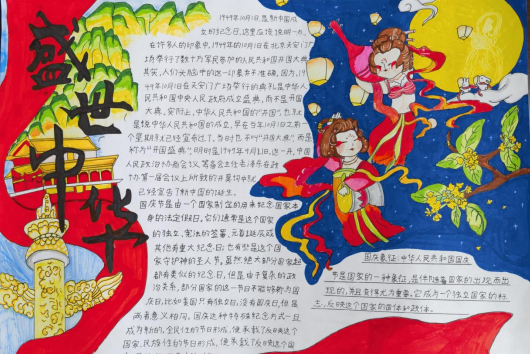 盛世中华
1949年10月1日,是新中国成
立的纪念日,这里应该说明一点,
在许多人的印象中,1949年的10月1日在北京天安门广
场举行了数十万军民参加的中华人民共和国开国大典
其实,人们头脑中的这一印象并不准确,因为,1
949年10月1日在天安门广场举行的典礼是中华人
民共和国中央人民政府成立盛典,而不是开国
大典,实际上,中华人民共和国的"开国",也就
是说中华人民共和国的成立,早在当年10月1日之前一
个星期就已经宣布过了,当时也不叫"开国大典",而是
称为"开国盛典"。明时是1949年9月21日,这一天,中国
人民政治协商会议,筹备会主任毛泽东在政
协第一届会议上所致的开幕词中就
已经宣告了新中国的诞生。
国庆节是由一个国家制定的用来纪念国家本
身的法定假日,它们通常是这个国家
的独立,宪法的签署,元首诞辰或
其他有重大纪念日;也有些是这个国
家守护神的圣人节,虽然绝大部分国家
都有类似的纪念日,但是由于复杂的政
治关系,部分国家的这一节日不能够称为国
庆日,比如美国只有独立日,没有国庆日,但是
两者意义相同,国庆这种特殊纪念方式一旦
成为新的,全民性的节日形式,便承载了反映这个
国家,民族性的节日形式,便承载了反映这个国
国庆象征:中华人民共和国国庆
节是国家的一种象征,是伴随着国家的出现而出
现的,并且变得尤为重要,它成为一个独立国家的标
志,反映这个国家的国体和政体。